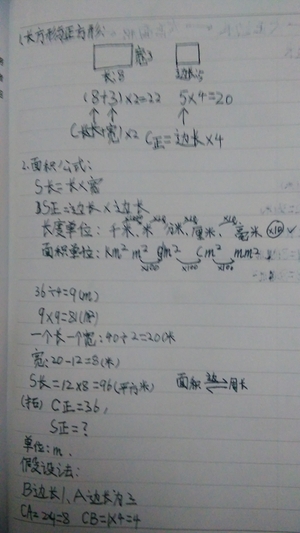 1.长方形与正方形:
宽:3
长:8 边长:5
(8+3)×2=22 5×4=20
C长=(长+宽)×2 C正=边长×4
2.面积公式:
S长=长×宽
S正=边长×边长
长度单位: 千米、米、分米、厘米、毫米 ×10
面积单位: km² m² dm² cm² mm²
×100 ×100 ×100
36÷4=9(m)
9×9=81(m²)
一个长一个宽:40÷2=20(米)
宽:20-12=8(米)
S长=12×8=96(平方米) 面积 周长
(拓) C正=36,
S正=?
单位:m.
假设法:
B边长1、A边长为2
CA=2×4=8 CB=1×4=4